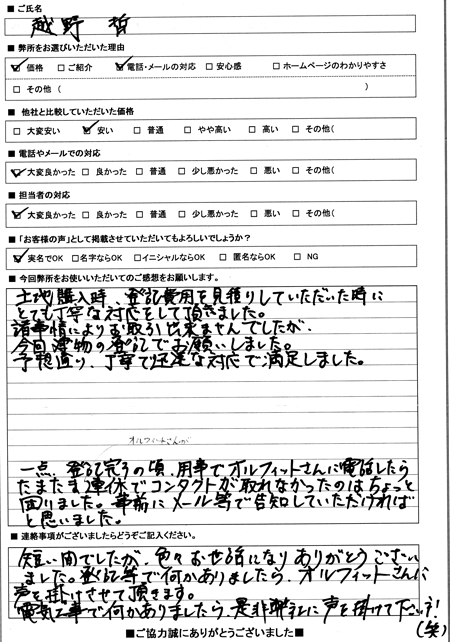 ■ ご氏名
越野 哲
■ 弊所をお選びいただいた理由
☑ 価格 □ ご紹介 ☑ 電話・メールの対応 □ 安心感 □ ホームページのわかりやすさ
□ その他 ( )
■ 他社と比較していただいた価格
□ 大変安い ☑ 安い □ 普通 □ やや高い □ 高い □ その他(
■ 電話やメールでの対応
☑ 大変良かった □ 良かった □ 普通 □ 少し悪かった □ 悪い □ その他(
■ 担当者の対応
☑ 大変良かった □ 良かった □ 普通 □ 少し悪かった □ 悪い □ その他(
■ 「お客様の声」として掲載させていただいてもよろしいでしょうか？
☑ 実名でOK □ 名字ならOK □ イニシャルならOK □ 匿名ならOK □ NG
■ 今回弊所をお使いいただいてのご感想をお願いします。
土地購入時、登記費用を見積りしていただいた時に
とても丁寧な対応をして頂きました。
諸事情によりお取引出来ませんでしたが、
今回建物の登記でお願いしました。
予想通り、丁寧で迅速な対応で満足しました。
オルフィットさんが
一点、登記完了の頃、用事でオルフィットさんに電話したら
たまたま連休でコンタクトが取れなかったのはちょっと
困りました。事前にメール等で告知していただければ
と思いました。
■ 連絡事項がございましたらどうぞご記入ください。
短い間でしたが、色々お世話になりありがとうござい
ました。登記等で何かありましたら、オルフィットさんに
声を掛けさせて頂きます。
電気工事で何かありましたら、是非弊社に声を掛けて下さい!
(笑)
■ご協力誠にありがとうございました■